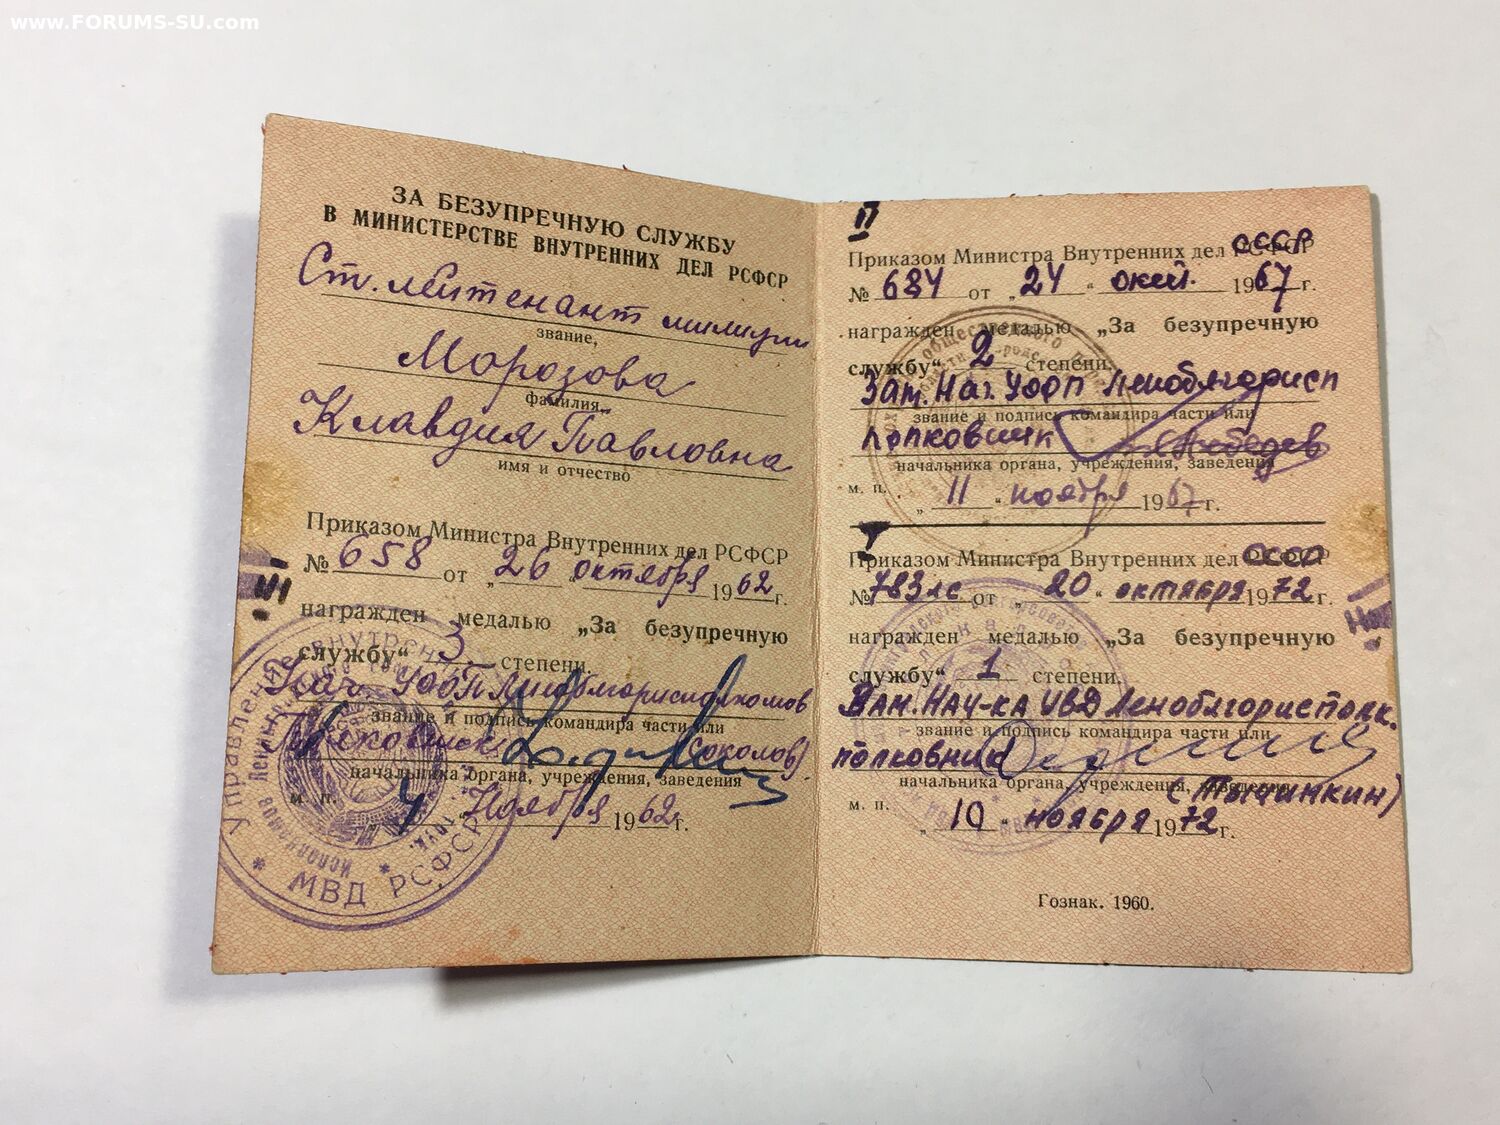 www.FORUMS-SU.com
ЗА БЕЗУПРЕЧНУЮ СЛУЖБУ
В МИНИСТЕРСТВЕ ВНУТРЕННИХ ДЕЛ РСФСР
Ст. лейтенант милиции
звание,
Морозова
фамилия,
Клавдия Павловна
имя и отчество
Приказом Министра Внутренних дел РСФСР
№ 658 от „26 " октября 1962 г.
III
награжден медалью „За безупречную
службу" 3 степени.
Нач. УООП Леноблгорисполкомов
звание и подпись командира части или
(Соколов)
начальника органа, учреждения, заведения
м. п. „4 " Ноября 1962 г.
Управление внутренних
МВД РСФСР
II
Приказом Министра Внутренних дел СССР
№ 684 от „24 " окт. 1967 г.
награжден медалью „За безупречную
службу" 2 степени.
Зам. Нач. УООП Леноблгорисп
звание и подпись командира части или
полковник Лебедев
начальника органа, учреждения, заведения
м. п. „11 " ноября 1967 г.
I
Приказом Министра Внутренних дел СССР
№ 783лс от „20 " октября 1972 г.
награжден медалью „За безупречную
службу" 1 степени.
Зам. Нач-ка УВД Леноблгорисполк.
звание и подпись командира части или
полковник
начальника органа, учреждения, заведения
(Тычинкин)
м. п. „10 " ноября 1972 г.
Гознак. 1960.